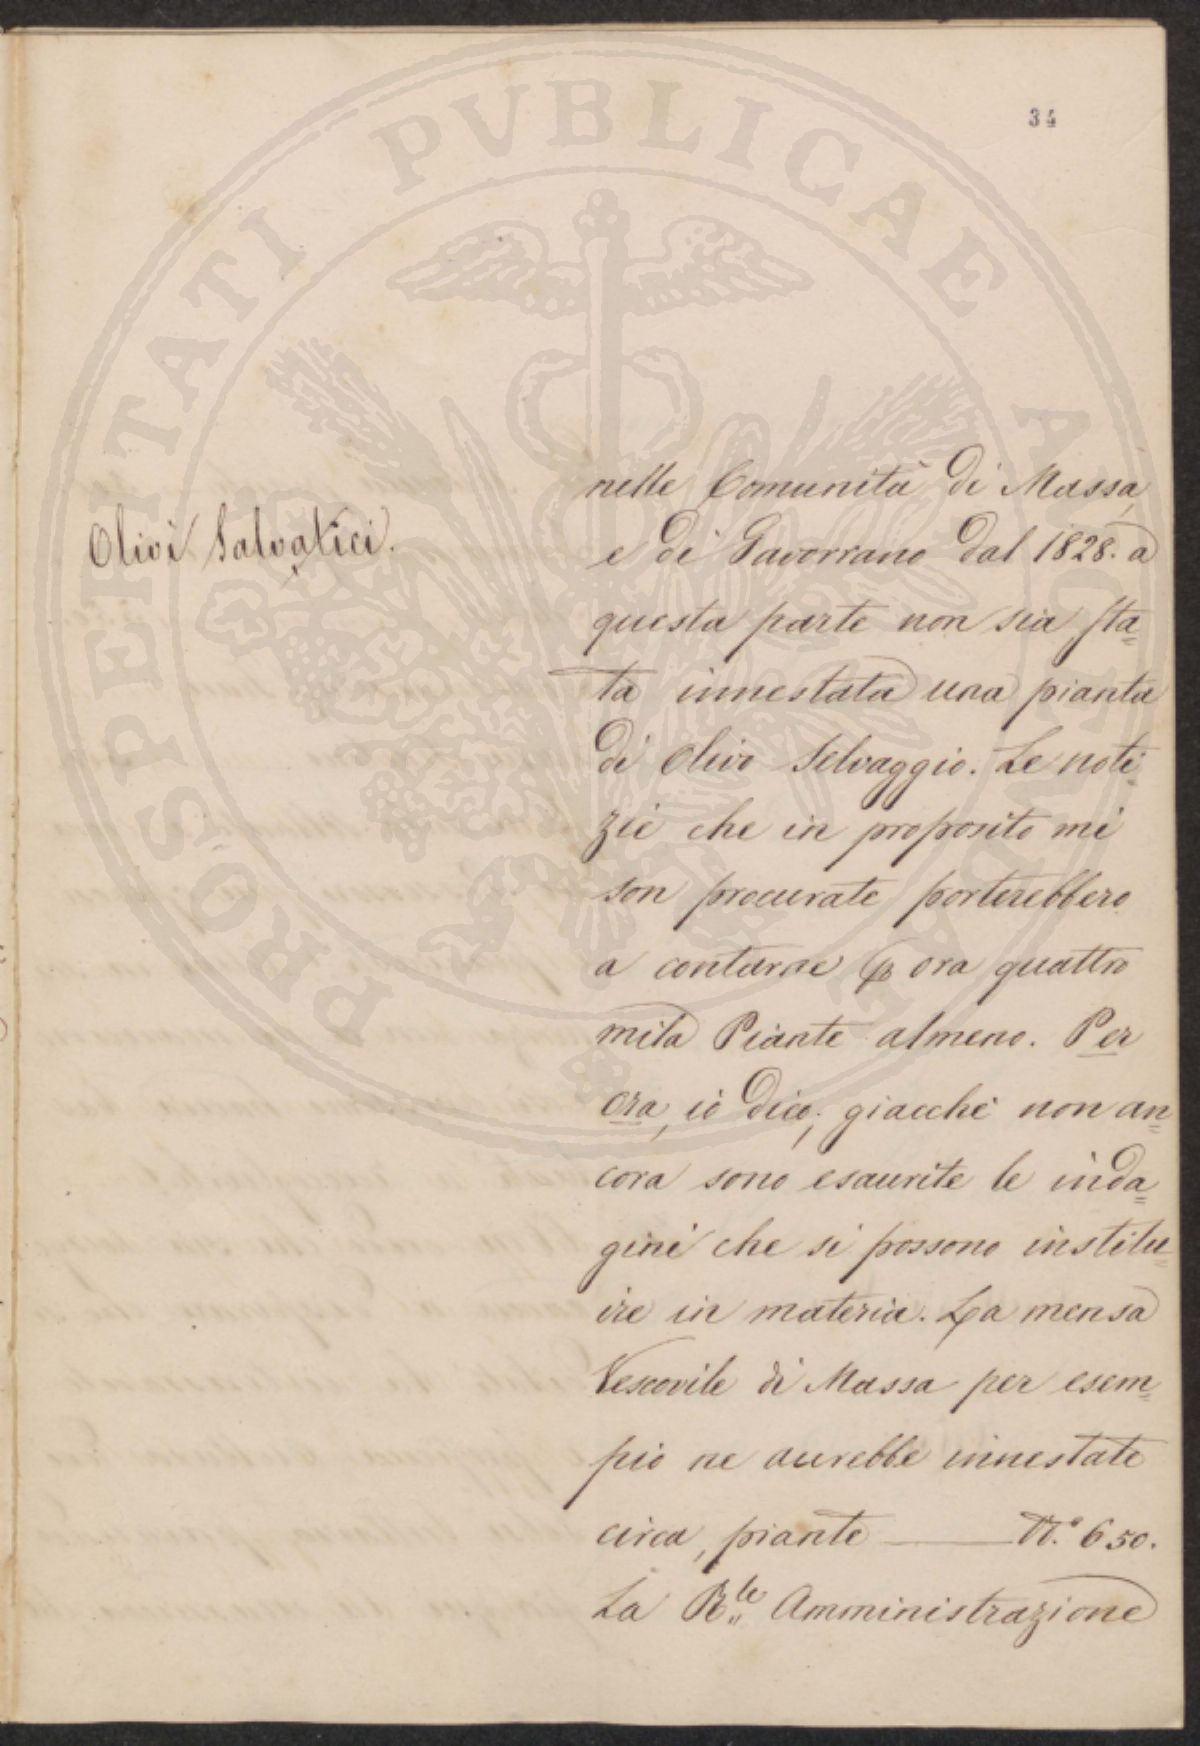 34
PROSPERITATI PVBLICAE AVGENDAE
Olivi Salvatici.
nelle Comunità di Massa,
e di Gavorrano dal 1828. a
questa parte non sia sta=
ta innestata una pianta
di Olivo Selvaggio. Le noti=
zie che in proposito mi
son procurate porterebbero
a contarne ora quattro
mila Piante almeno. Per
ora, io dico; giacchè non an=
cora sono esaurite le inda=
gini che si possono institu=
ire in materia. La mensa
Vescovile di Massa per esem=
pio ne aurebbe innestate
circa, piante ——— N.° 650.
La R.le Amministrazione